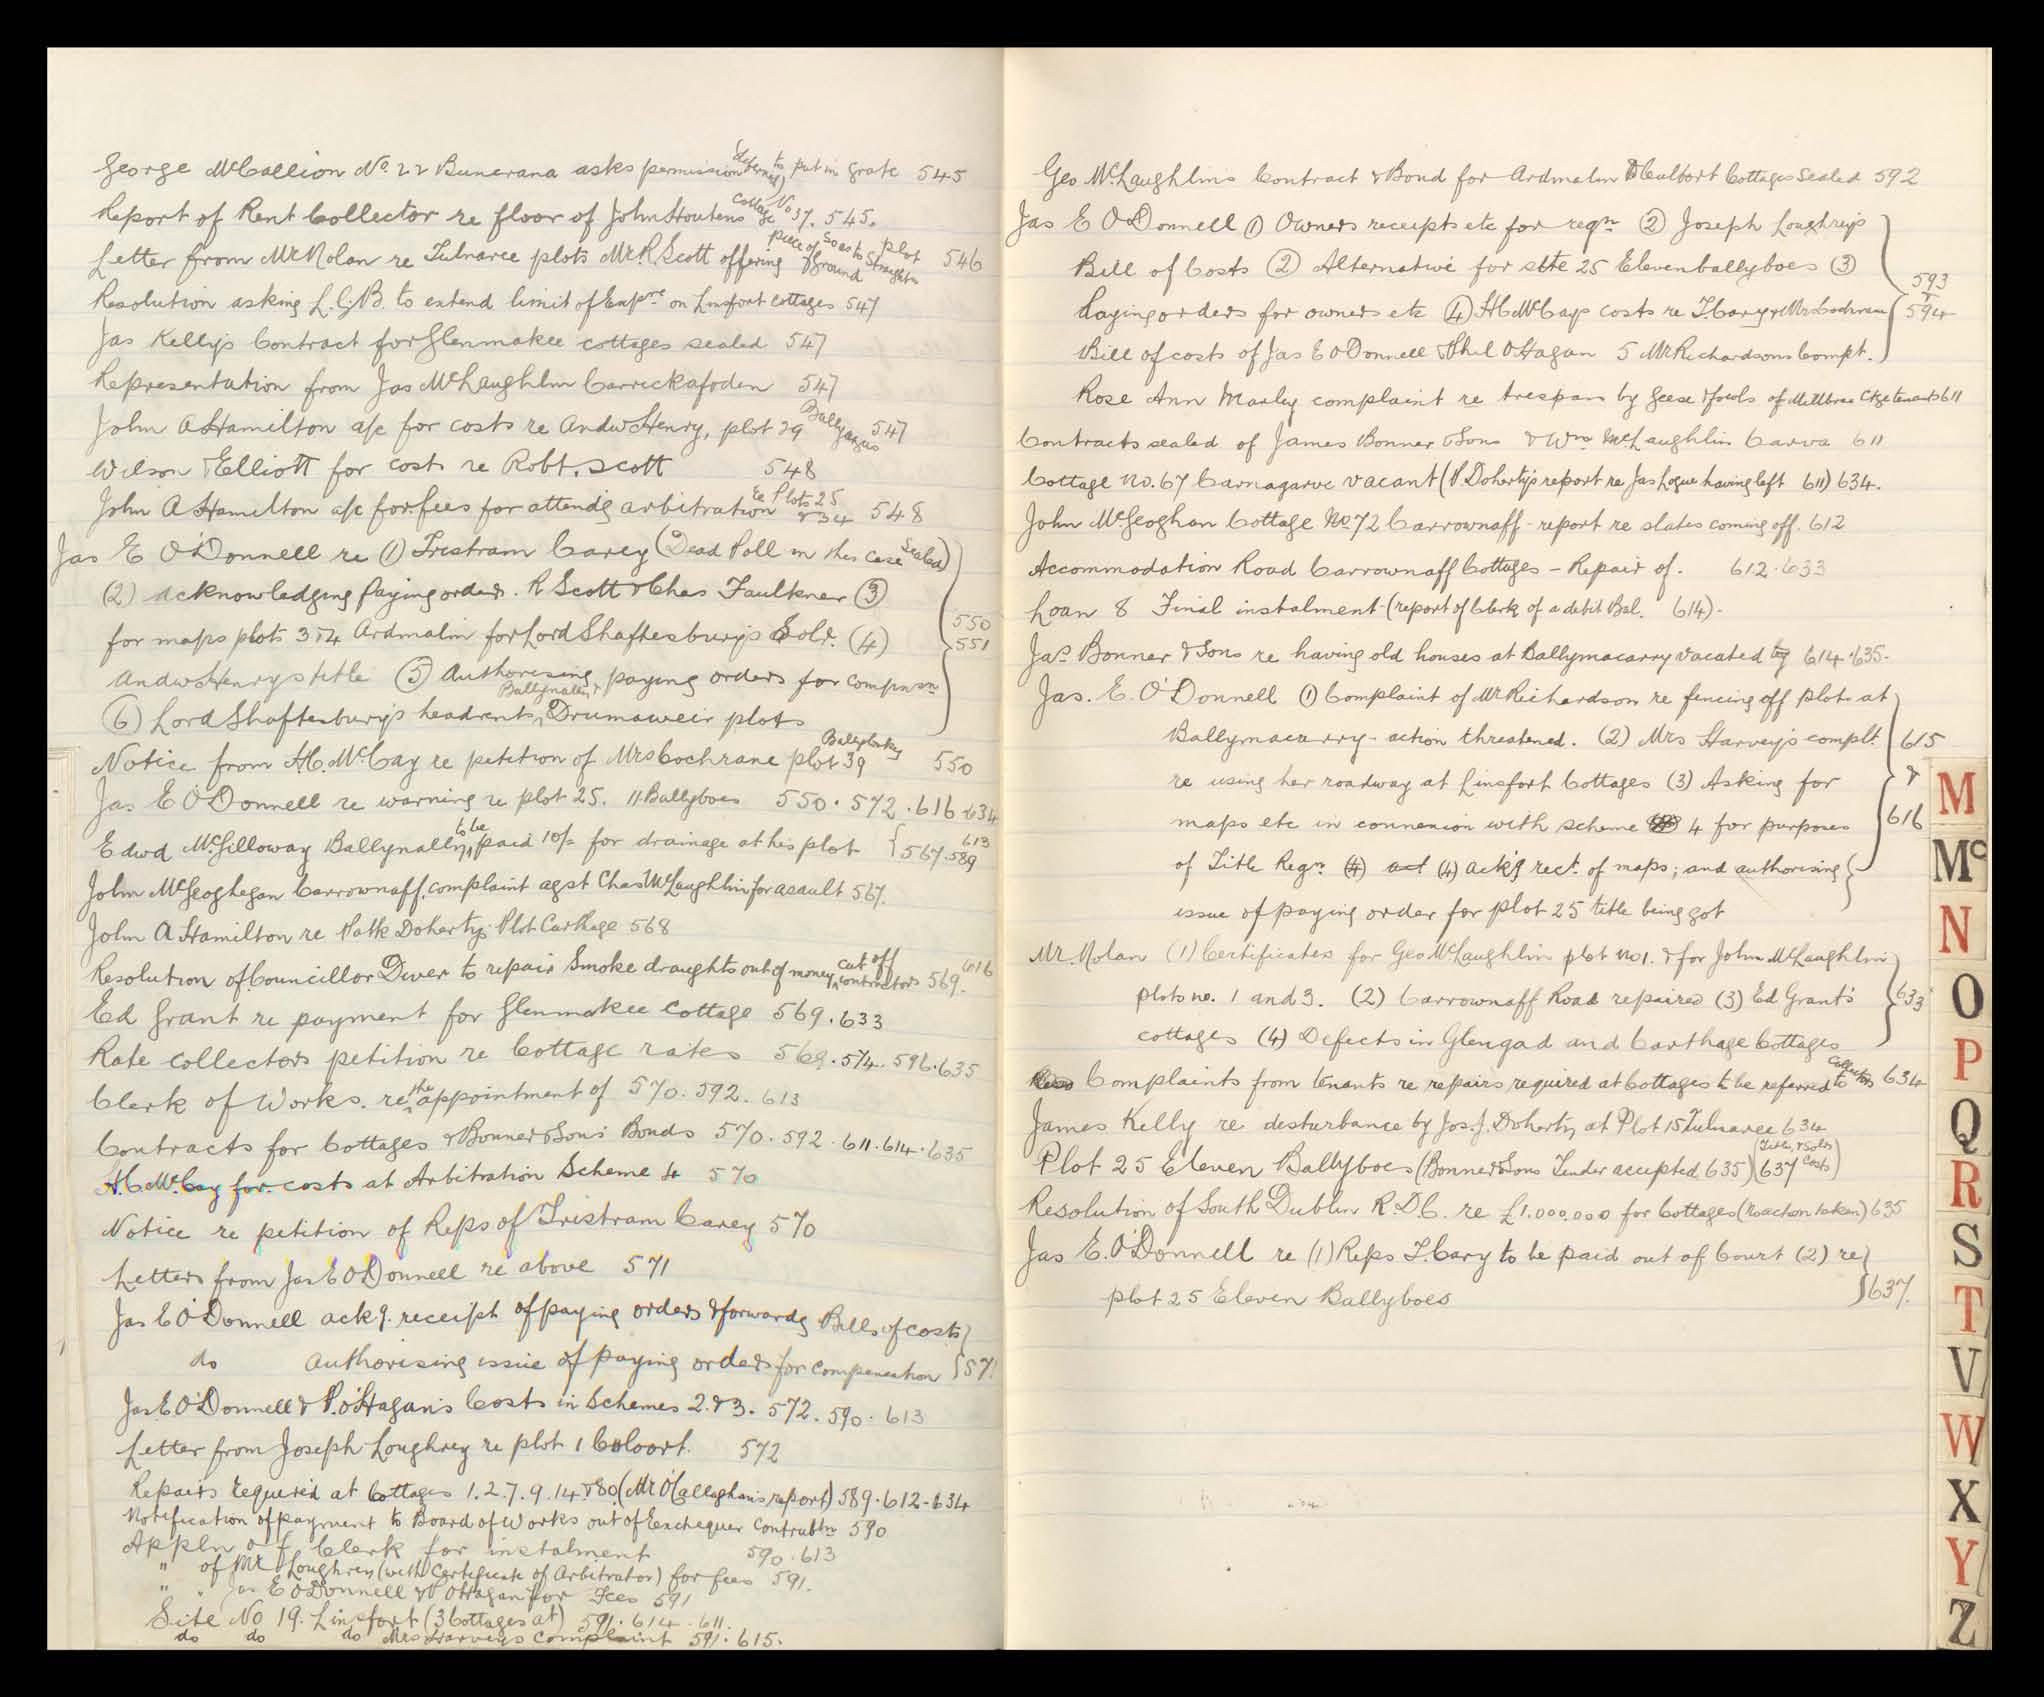 George McCallion No. 22 Buncrana asks permission (deferred) to put in grate 545
Report of Rent Collector re floor of John Houtens Cottage No 37. 545.
Letter from Mr Nolan re Tulnaree plots Mr R. Scott offering piece of ground so as to straighten plot 546
Resolution asking L.G.B. to extend limit of Expre on Linsfort cottages 547
Jas Kelly's Contract for Glenmakee cottages sealed 547
Representation from Jas McLaughlin Carrickafoden 547
John A Hamilton a/c for costs re Andw Henry, plot 29 Ballyargus 547
Wilson & Elliott for costs re Robt. Scott 548
John A Hamilton a/c for fees for attendg arbitration re Plots 25 & 34 548
Jas E O'Donnell re (1) Tristram Carey (Dead Poll in this case Sealed)
(2) acknowledging paying orders. R Scott & Chas Faulkner (3)
for maps plots 3 & 4 Ardmalin for Lord Shaftesbury's Solr. (4) 550
Andw Henrys title (5) Authorising paying orders for compnsn 551
(6) Lord Shaftesbury's headrents, Ballynally & Drumaweir plots
Notice from H.C. McCay re petition of Mrs Cochrane plot 39 550
Jas E O'Donnell re warning re plot 25. 11 Ballyboes 550. 572. 616 634
Edwd McGilloway Ballynally, to be paid 10/- for drainage at his plot { 567. 589 613
John McGeoghegan Carrownaff, complaint agst Chas McLaughlin for asault 567.
John A Hamilton re Patk Doherty's Plot Carthage 568
Resolution of Councillor Diver to repair smoke draughts out of money cut off contractors 569. 616
Ed Grant re payment for Glenmakee cottage 569. 633
Rate collectors petition re Cottage rates 569. 574. 596. 635
Clerk of Works. re the appointment of 570. 592. 613
Contracts for Cottages & Bonner & Sons' Bonds 570. 592. 611. 614. 635
H.C. McCay for costs at Arbitration Scheme 4 570
Notice re petition of Reps of Tristram Carey 570
Letters from Jas E O'Donnell re above 571
Jas E O'Donnell ackg. receipt of paying orders & forwardg Bills of costs }
do authorising issue of paying orders for compensation } 571
Jas E O'Donnell & P. O'Hagan's Costs in Schemes 2. & 3. 572. 590. 613
Letter from Joseph Loughrey re plot 1 Culoort. 572
Repairs required at Cottages 1. 2. 7. 9. 14. & 80 (Mr O'Callaghan's report) 589. 612. 634
Notification of payment to Board of Works out of Exchequer Contrubtn 590
Appln of Clerk for instalment 590. 613
" of Mr Loughrey (with Certificate of Arbitrator) for fees 591.
" " Jas E O'Donnell & P O'Hagan for Fees 591
Site No 19. Linsfort (3 Cottages at) 591. 614. 611.
do do do Mrs Harveys complaint 591. 615.
Geo McLaughlins Contract & Bond for Ardmalin & Culbort Cottages Sealed 592
Jas E O'Donnell (1) Owners receipts etc for regn (2) Joseph Loughreys
Bill of Costs (2) Alternative for site 25 Elevenballyboes (3) 593
Paying orders for owners etc (4) H C McCays costs re T. Cary & Mrs Cochrane & 594
Bill of costs of Jas E O'Donnell & Phil O'Hagan 5 Mr Richardsons Compt.
Rose Ann Marley complaint re trespass by geese & fowls of Millbrae Ctge tenants 611
Contracts sealed of James Bonner & Sons & Wm McLaughlin Carva 611
Cottage No. 67 Carnagarve vacant (P. Doherty's report re Jas Logue having left 611) 634.
John McGeoghan Cottage No. 72 Carrownaff - report re slates coming off. 612
Accommodation Road Carrownaff Cottages - Repair of. 612. 633
Loan 8 Final instalment - (report of Clerk of a debit Bal. 614).
Jas Bonner & Sons re having old houses at Ballymacarry vacated 614. 635.
Jas. E. O'Donnell (1) Complaint of Mr Richardson re fencing off plots at
Ballymacarry - action threatened. (2) Mrs Harvey's complt. 615
re using her roadway at Linsfort Cottages (3) Asking for &
maps etc in connexion with scheme 4 for purposes 616
of Title Regn (4) act (4) ackg rect. of maps; and authorising
issue of paying order for plot 25 title being got
Mr. Nolan (1) Certificates for Geo McLaughlin plot no 1. & for John McLaughlin
plots no. 1 and 3. (2) Carrownaff Road repaired (3) Ed Grant's 633
cottages (4) Defects in Glengad and Carthage Cottages
Complaints from tenants re repairs required at Cottages to be referred to Collectors 634
James Kelly re desturbance by Jos. J. Doherty at Plot 15 Tulnaree 634
Plot 25 Eleven Ballyboes (Bonner & Sons Tender accepted 635) (637 Title, & Solrs Costs)
Resolution of South Dublin R.D.C. re £1.000.000 for Cottages (no action taken) 635
Jas E. O'Donnell re (1) Reps T. Cary to be paid out of Court (2) re
plot 25 Eleven Ballyboes 637.
M
Mc
N
O
P
Q
R
S
T
V
W
X
Y
Z